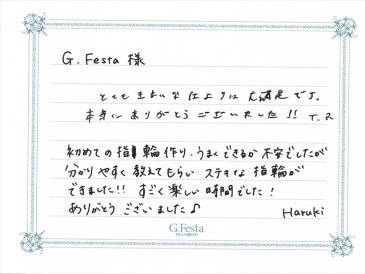 G. Festa 様
とてもきれいな仕上りに大満足です。
本当にありがとうございました!! T.R
初めての指輪作り、うまくできるか不安でしたが
分かりやすく教えてもらい ステキな指輪が
できました!! すごく楽しい時間でした!
ありがとうございました♪
Haruki
G.Festa
DIAMOND